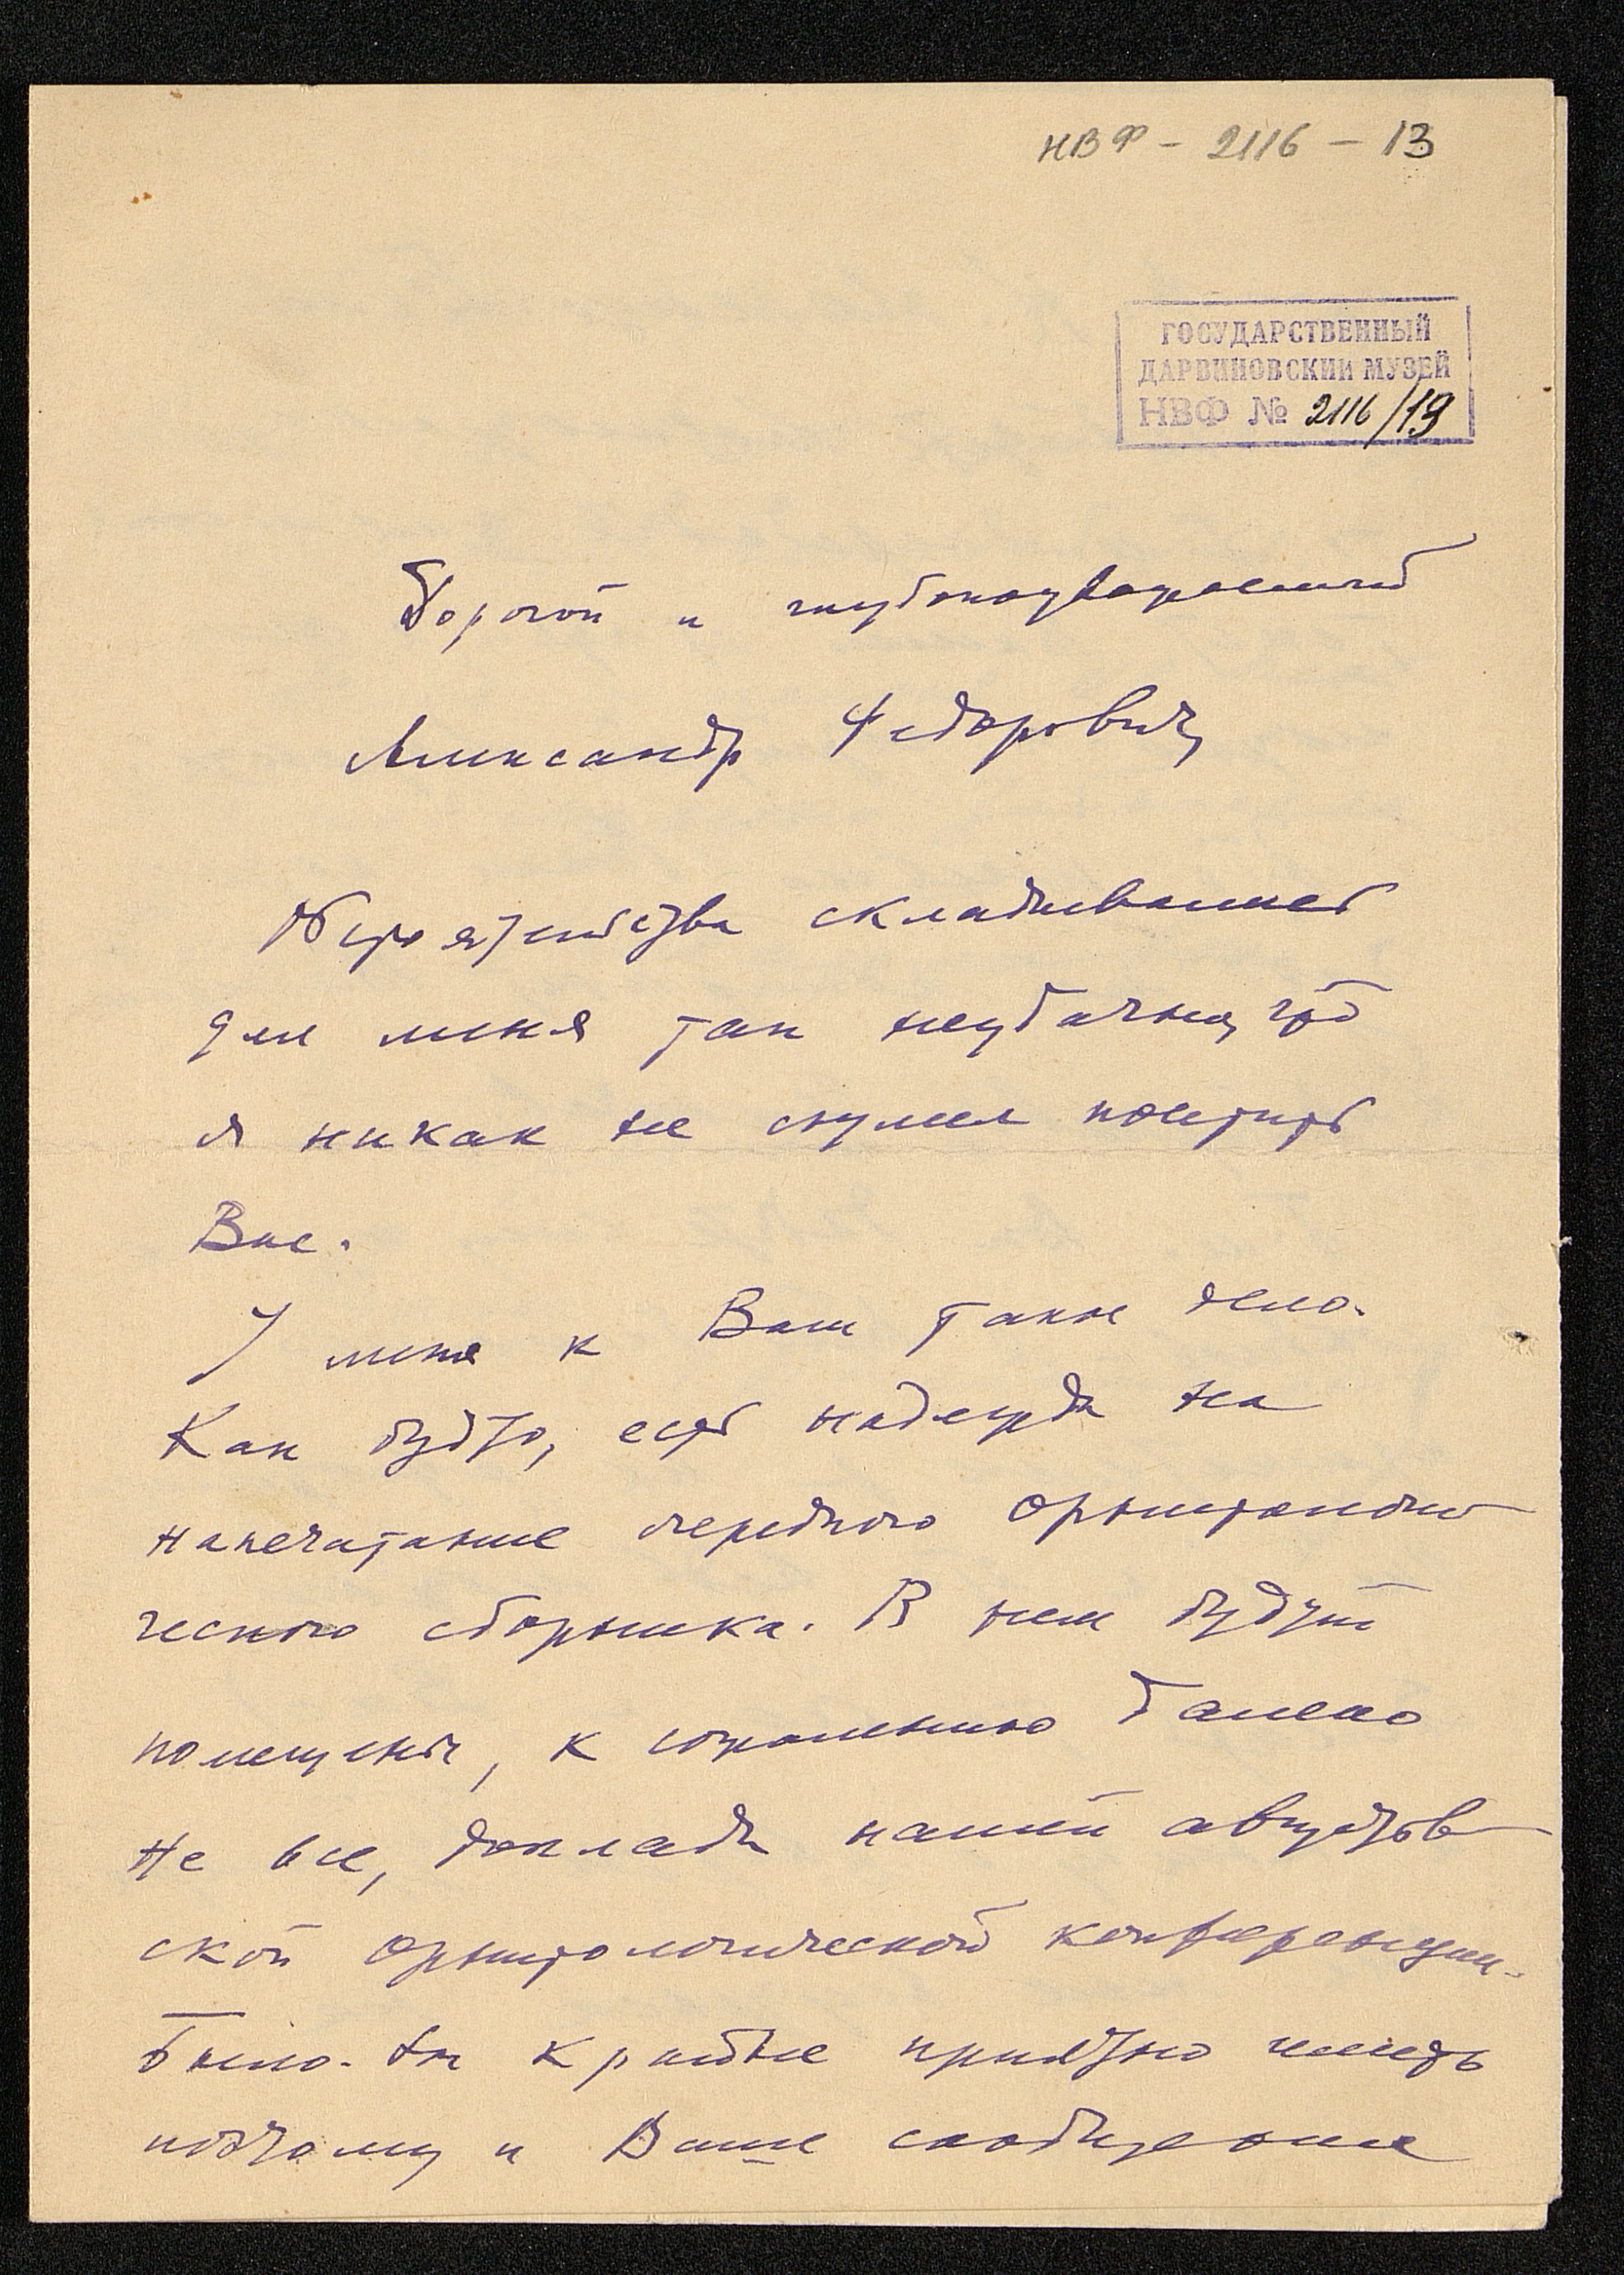 НВФ - 2116 - 13
ГОСУДАРСТВЕННЫЙ
ДАРВИНОВСКИЙ МУЗЕЙ
НВФ № 2116/19
Дорогой и глубокоуважаемый
Александр Федорович,
Обстоятельства складывались
для меня так неудачно, что
я никак не сумел посетить
Вас.
У меня к Вам такое дело.
Как будто, есть надежда на
напечатание очередного орнитологи-
ческого сборника. В нем будут
помещены, к сожалению далеко
не все, доклады нашей августов-
ской орнитологической конференции.
Было бы крайне приятно иметь
поэтому и Ваше сообщение